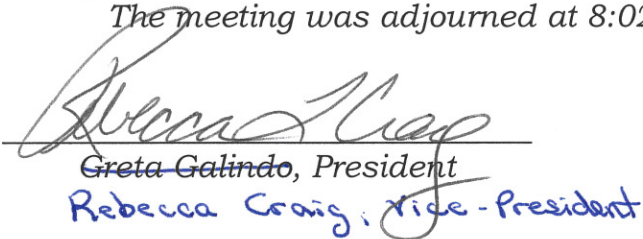 The meeting was adjourned at 8:02
Rebecca L Craig
Greta Galindo, President
Rebecca Craig, Vice-President